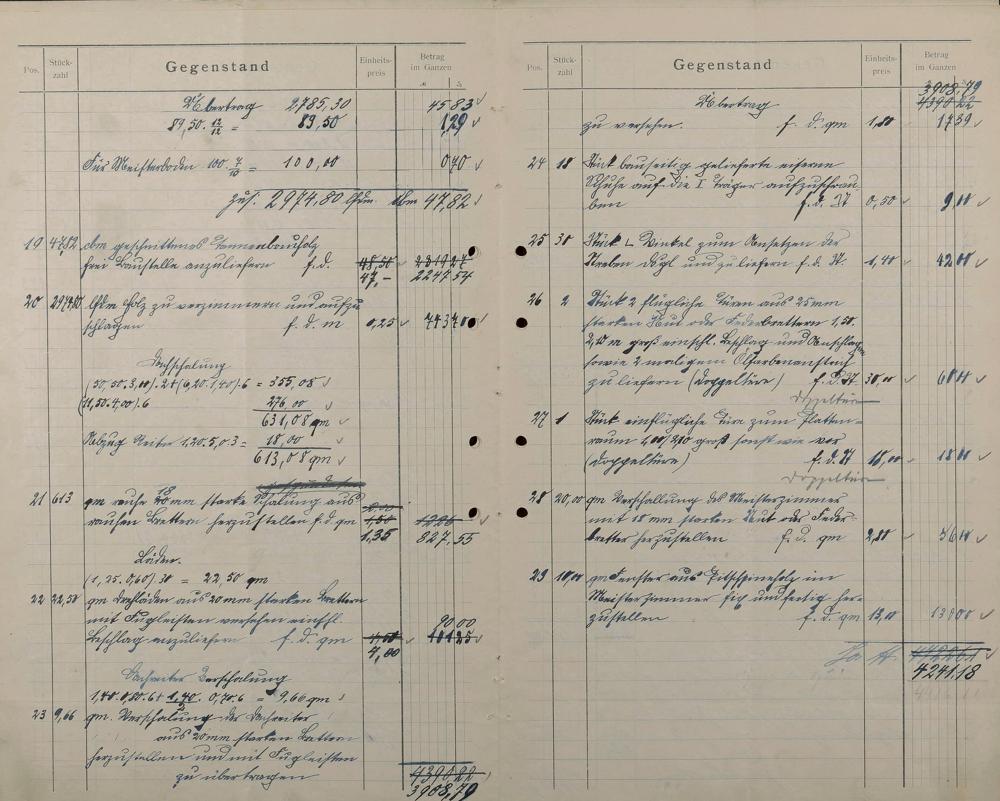 Pos. Stückzahl Gegenstand Einheitspreis Betrag im Ganzen
Übertrag 2785,30 45,83
89,50. 12/12 = 89,50 1,29
Für Meisterboden 100. 7/10 = 100,00 0,70
zus. 2974,80 lfdm. cbm 47,82
19 47,82 cbm geschnittenes Tannenbauholz
frei Baustelle anzuliefern f. d. 48,50 2319 27
47,- 2247.54
20 2974,80 lfdm Holz zu verzimmern und aufzu
schlagen f. d. m 0,25 743 70
Dachschalung
(50,50.3,00).2+(6,20.1,40).6 = 355,08
(11,50.4,00).6 276,00
631,08 qm
Abzug Reiter 1,20.5,0.3 = 18,00
613,08 qm
21 613 qm rauhe 18 mm starke Schalung aus
rauhen Brettern herzustellen f. d. qm 1226
1,35 827.55
Läden.
(1,25.0,60).30 = 22,50 qm
22 22,50 qm Drehläden aus 20 mm starken Brettern
mit Zugleisten versehen einschl. 90.00
Beschlag anzuliefern f. d. qm 4,50 101 25
4,00
Dachreiter Verschalung
1,40.0,80.6+ 1,40/2 . 0,70.6 = 9,66 qm
23 9,66 qm Verschalung der Dachreiter
aus 20 mm starken Brettern
herzustellen und mit Zugleisten
zu übertragen 4390.22
3908,79
Pos. Stückzahl Gegenstand Einheitspreis Betrag im Ganzen
3908,79
Übertrag 4390 22
zu versehen. f. d. qm 1,80 17 39
24 18 Stück bauseitig gelieferte eiserne
Schuhe auf die I Träger aufzuschrau
ben f. d. St 0,50 9,00
25 30 Stück L Winkel zum Ansetzen der
Streben dsgl und zu liefern f. d. St. 1,40 42 00
26 2 Stück 2 flüglige Türen aus 25 mm
starken Nut oder Federbrettern 1,50.
2,10 m groß einschl. Beschlag und Anschlagen
sowie 2 maligem Ölfarbenanstrich
zu liefern (Doppeltüre) f. d. St. 30,00 60 00
Doppeltüren
27 1 Stück einflüglige Türe zum Platten-
raum 1,00/2,10 groß sonst wie vor
(Doppeltüre) f. d. St 18,00 18 00
Doppeltüren
28 20,00 qm Verschallung des Meisterzimmer
mit 18 mm starken Nut oder Feder-
bretter herzustellen f. d. qm 2,80 56 00
29 10,00 qm Fenster aus Pitschpineholz im
Meisterzimmer fix und fertig her-
zustellen f. d. qm 13,00 130 00
4241.18